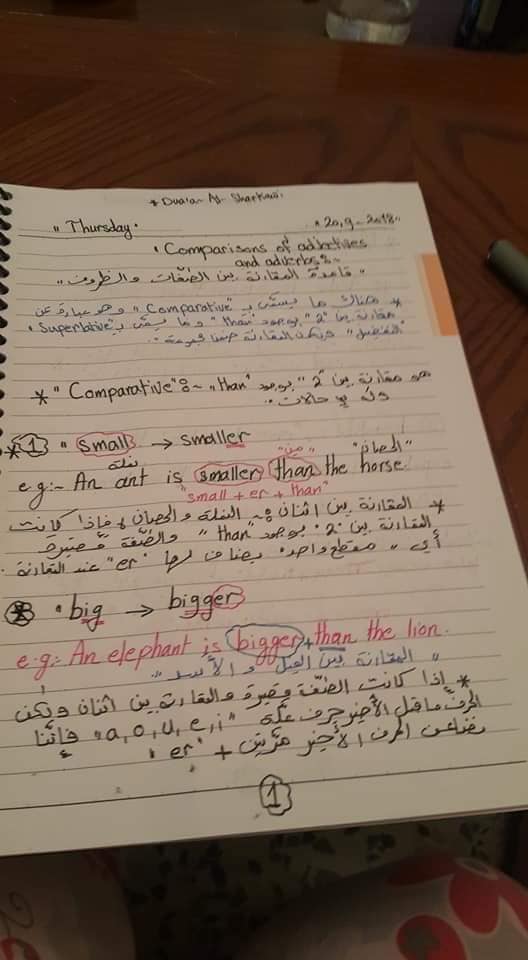 * Duaa- Al- Sharkawi.
" Thursday. " 20,9-2018 "
• Comparisons of adjectives
and adverbs:-
" قاعدة المقارنة بين الصفات والظروف "
* هناك ما يسمى بـ "Comparative" وهو عبارة عن
مقارنة بين "2" بوجود "than" وما يسمى بـ "Superlative"
"التفضيل" وتكون المقارنة ضمن مجموعة.
* "Comparative":~ هو مقارنة بين "2" بوجود "than"
وله حالات.
* 1 " small → smaller
نملة "من" "الحصان"
e.g:- An ant is smaller than the horse.
"small + er + than"
* المقارنة بين اثنان هم النملة والحصان فإذا كانت
المقارنة بين "2" بوجود "than" والصفة قصيرة
أي " مقطع واحد" يضاف لها "er" عند المقارنة.
2 • big → bigger
e.g:- An elephant is bigger + than the lion.
" المقارنة بين الفيل والأسد "
* إذا كانت الصفة قصيرة والمقارنة بين اثنان ويكن
الحرف ما قبل الأخير حرف علة "a, o, u, e, i" فإننا
نضاعف الحرف الأخير مرتين + "er"
1